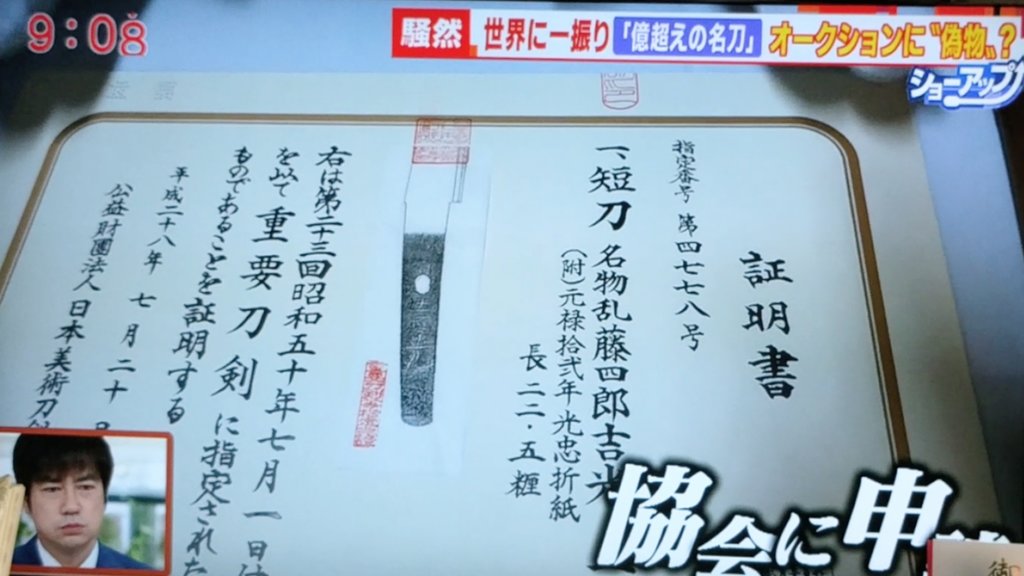 9:08
騒然 世界に一振り「億超えの名刀」オークションに〝偽物〟?
ショーアップ
証明書
指定番号 第四七七八号
一、短刀 名物乱藤四郎吉光
(附)元禄拾弐年光忠折紙
長 二二・五糎
右は第二十三回昭和五十年七月一日
を以て重要刀剣に指定された
ものであることを証明する
平成二十八年 七月二十
公益財團法人 日本美術刀剣
協会に申